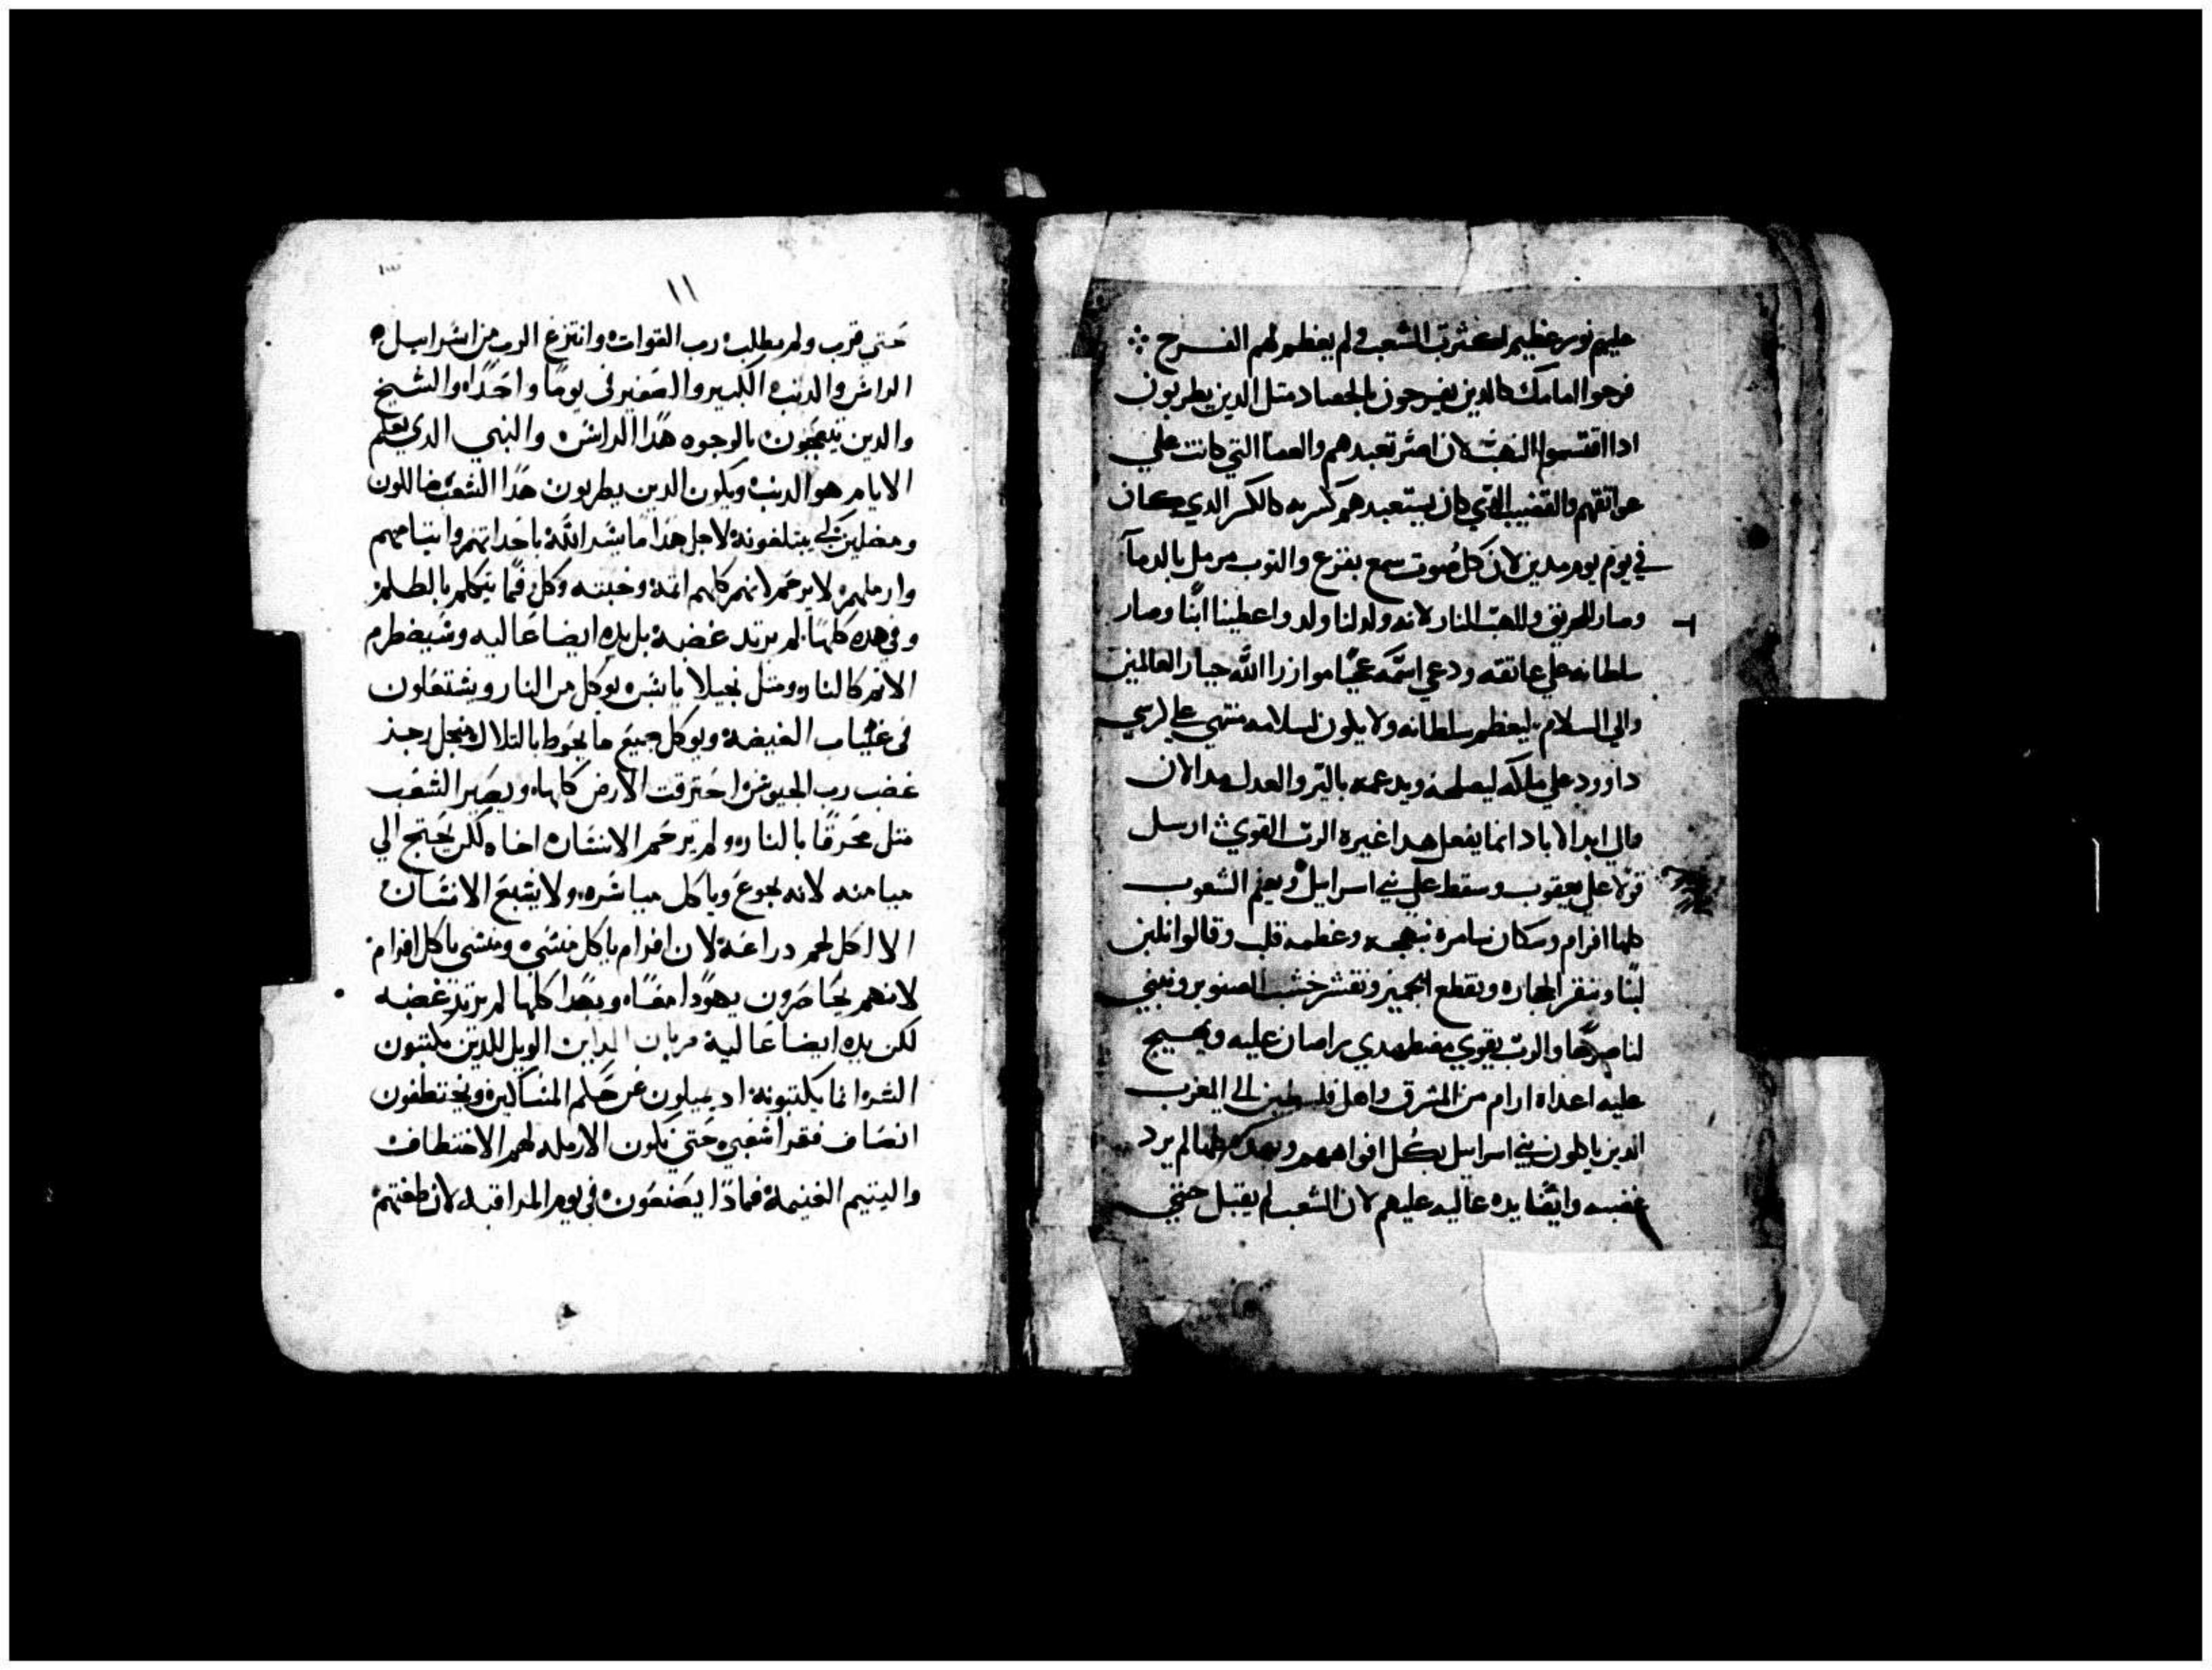 عليهم نور عظيم لكثرت الشعب ولم يعظم لهم الفرح
فرحوا امامك كالدين يفرحون بالحصاد متل الدين يطربون
ادا اقتسموا النهب لان تعبدهم والعصا التي كانت علي
عواتقهم والقضيب الدي كان يستعبدهم كسرته كالكسر الدي كان
في يوم مدين لان كل صوت سمع بفزع والتوب مرمل بالدمآ
وصار للحريق وللهب النار لانه ولد لنا ولد واعطينا ابنا وصار
سلطانه علي عاتقه ودعي اسمه عجبا موازرا الله جبار العالمين
والي السلام ليعظم سلطانه ولا يكون لسلامه منتهي علي كرسي
داوود علي ملكه ليصلحه ويدعمه بالبر والعدل مد الان
والي ابد الاباد انما يفعل هدا غيرة الرب القوي ارسل
قولا علي يعقوب وسقط علي بني اسراييل ويعلم الشعوب
كلها افرام وسكان سامره وعظمه قلب وقالوا
لبنا وننقر الحجاره ونقطع الجميز ونقشر خشب الصنوبر ونبني
لنا والرب يقوي مضطهدي براصان عليه ويهيج
عليه اعداه ارام من المشرق واهل فلسطين الي المغرب
الدين ياكلون بني اسراييل بكل افواههم وبهده كلها لم يرد
غضبه وايضا يده عاليه عليهم لان الشعب لم يقبل حتي
١١
حتي قرب ولم يطلب رب القوات وانتزع الرب من اسراييل
الراس والدنب الكبير والصغير في يوما واحدا والشيخ
والدين يتعجبون بالوجوه هدا الراس والنبي الدي يعلم
الايام هو الدنب ويكون الدين يطربون هدا الشعب ضاللون
ومضلين لكي يبتلعونه لاجل هدا ما يسر الله باحداتهم وايتامهم
وارملهم لا يرحم لانهم كلهم اتمة وخبته وكل فما يتكلم بالظلم
وفي هده كلها لم يرتد غضبه بل يده ايضا عاليه وسيضطرم
الاتم كالنار ومتل نجيلا يابسه يوكل من النار ويشتعلون
في غياب الغيضه ويوكل جميع ما يحوط بالتلال من اجل رجز
غضب رب الجيوش احترقت الارض كلها ويصير الشعب
متل محرقا بالنار ولم يرحم الانسان اخاه لكن يحتج الي
ميامنه لانه يجوع وياكل مياسره ولا يشبع الانسان
الا اكل لحم دراعه لان افرام ياكل منسي ومنسي ياكل افرام
لانهم يحاصرون يهودا معا وبهدا كلها لم يرتد غضبه
لكن يده ايضا عالية الويل للدين يكتبون
الشر انما يكتبونه اد يميلون عن حكم المساكين ويختطفون
انصاف فقرا شعبي حتي تكون الارمله لهم الاختطاف
واليتيم الغنيمة فماذا يصنعون في يوم المراقبه لان ضغتهم